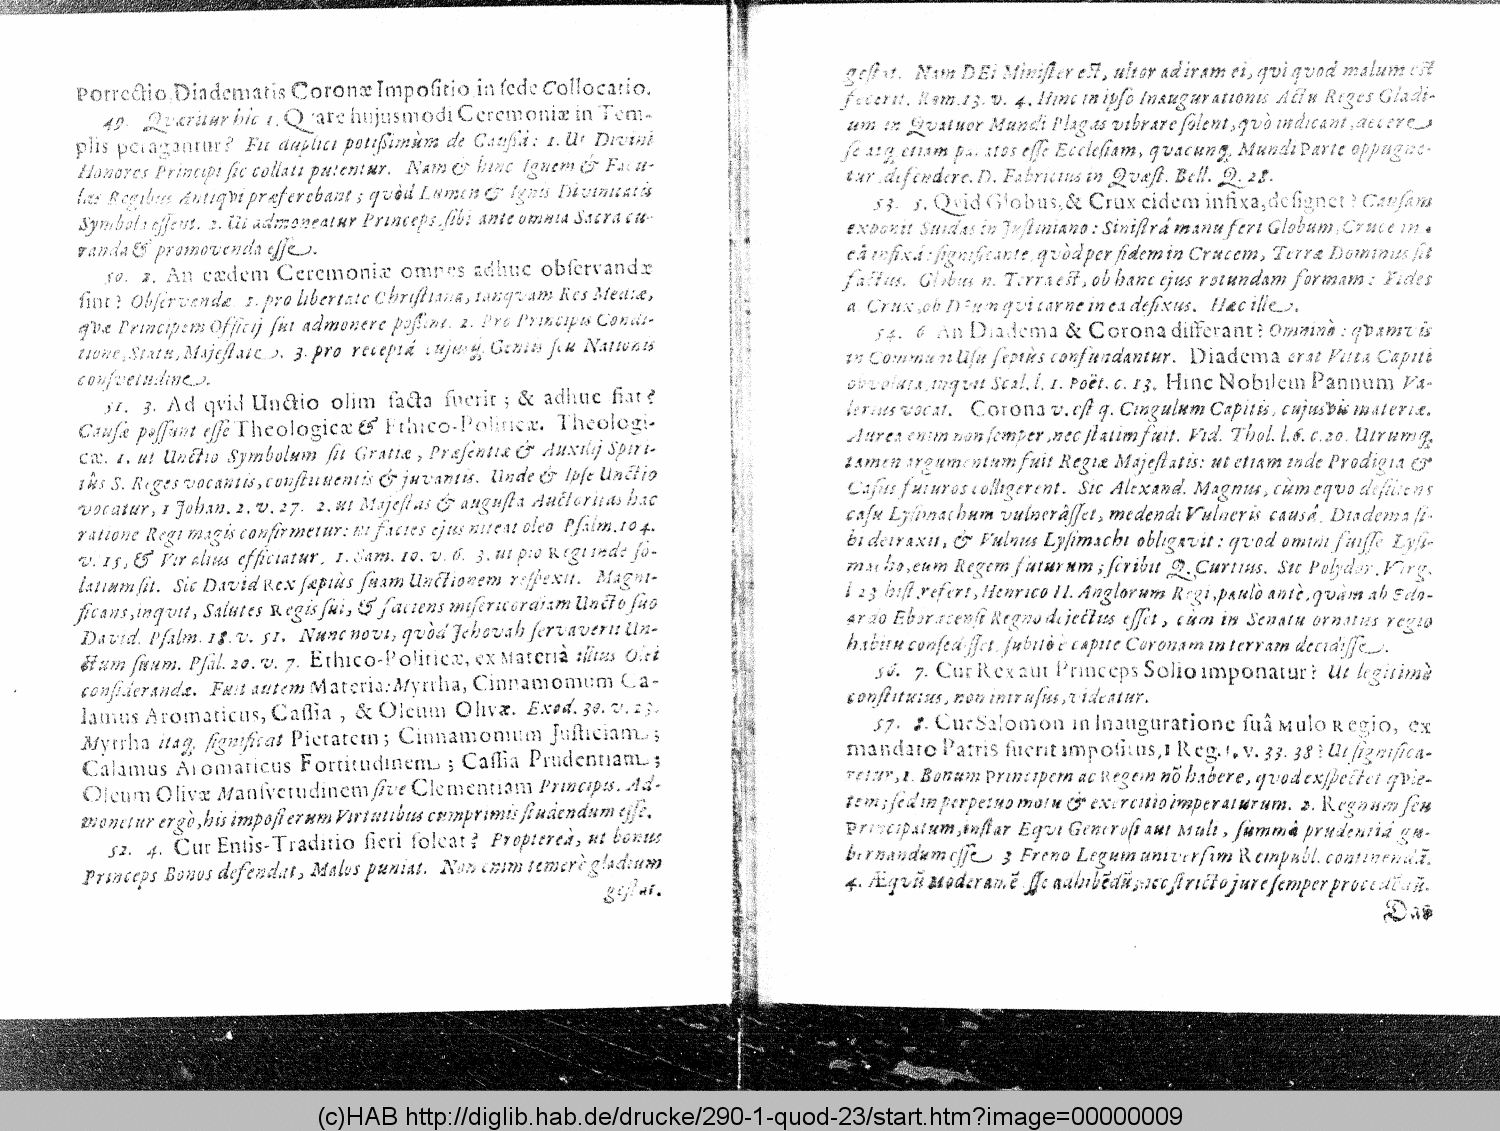 Porrectio Diadematis Coronæ Impositio in sede Collocatio.
49. Quæritur hic 1. Quare hujusmodi Ceremoniæ in Tem-
plis peragantur? Fit duplici potissimùm de Causâ: 1. Ut Divini
Honores Principi sic collati putentur. Nam & hinc Ignem & Facu-
las Regibus Antiqvi præferebant; quòd Lumen & Ignis Divinitatis
Symbola essent. 2. Ut admoneatur Princeps, sibi ante omnia Sacra cu-
randa & promovenda esse.
50. 2. An eædem Ceremoniæ omnes adhuc observandæ
sint? Observandæ 1. pro libertate Christiana, tanquam Res Mediæ,
qvæ Principem Officij sui admonere possint. 2. Pro Principis Condi-
tione, Statu, Majestate. 3. pro receptâ cujusq; Gentis seu Nationis
consvetudine.
51. 3. Ad qvid Unctio olim facta fuerit; & adhuc fiat?
Causæ possunt esse Theologicæ & Ethico-Politicæ. Theologi-
cæ. 1. ut Unctio Symbolum sit Gratiæ, Præsentiæ & Auxilij Spiri-
tûs S. Reges vocantis, constituentis & juvantis. Unde & Ipse Unctio
vocatur, 1 Johan. 2. v. 27. 2. ut Majestas & augusta Auctoritas hac
ratione Regi magis confirmetur: ut facies ejus niteat oleo Psalm. 104.
v. 15, & Vir alius efficiatur, 1. Sam. 10. v. 6. 3. ut pio Regi inde so-
latium sit. Sic David Rex sæpiùs suam Unctionem respexit. Magni-
ficans, inqvit, Salutes Regis sui, & faciens misericordiam Uncto suo
David. Psalm. 18. v. 51. Nunc novi, quòd Jehovah servaverit Un-
ctum suum. Psal. 20. v. 7. Ethico-Politicæ, ex Materiâ illius Olei
considerandæ. Fuit autem Materia: Myrrha, Cinnamomum Ca-
lamus Aromaticus, Cassia, & Oleum Olivæ. Exod. 30. v. 23.
Myrrha itaq; significat Pietatem; Cinnamomum Justiciam;
Calamus Aromaticus Fortitudinem; Cassia Prudentiam;
Oleum Olivæ Mansvetudinem sive Clementiam Principis. Ad-
monetur ergò, his imposterum Virtutibus cumprimis studendum esse.
52. 4. Cur Ensis-Traditio fieri soleat? Proptereà, ut bonus
Princeps Bonos defendat, Malos puniat. Non enim temerè gladium
gestat.
gestat. Nam DEi Minister est, ultor ad iram ei, qvi quod malum est
fecerit. Rom. 13. v. 4. Hinc in ipso Inaugurationis Actu Reges Gladi-
um in Quatuor Mundi Plagas vibrare solent, quò indicant, accere
se atq; etiam paratos esse Ecclesiam, qvacunq; Mundi Parte oppugne-
tur, defendere. D. Fabricius in Quæst. Bell. Q. 28.
53. 5. Qvid Globus, & Crux eidem infixa, designet? Causam
exponit Suidas in Justiniano: Sinistrâ manu fert Globum, Cruce in
eâ infixâ: significante, quòd per fidem in Crucem, Terræ Dominus sit
factus. Globus n. Terra est, ob hanc ejus rotundam formam: Fides
a. Crux, ob Deum qvi carne in ea defixus. Hæc ille.
54. 6 An Diadema & Corona differant? Omninò: qvamvis
in Communi Usu sæpiùs confundantur. Diadema erat Vitta Capiti
obvoluta, inqvit Scal. l. 1. Poët. c. 13. Hinc Nobilem Pannum Va-
lerius vocat. Corona v. est q. Cingulum Capitis, cujusvis materiæ.
Aurea enim non semper, nec statim fuit. Vid. Thol. l. 6. c. 20. Utrumq;
tamen argumentum fuit Regiæ Majestatis: ut etiam inde Prodigia &
Casus futuros colligerent. Sic Alexand. Magnus, cùm equo desiliens
casu Lysimachum vulnerâsset, medendi Vulneris causâ, Diadema si-
bi detraxit, & Vulnus Lysimachi obligavit: qvod omini fuisse Lysi-
macho, eum Regem futurum; scribit Q. Curtius. Sic Polydor. Virg.
l 23 hist. refert, Henrico II. Anglorum Regi, paulò antè, qvàm ab Edo-
ardo Eboracensi Regno dejectus esset, cùm in Senatu ornatus regio
habitu consedisset, subitò è capite Coronam in terram decidisse.
56. 7. Cur Rex aut Princeps Solio imponatur? Ut legitimè
constitutus, non intrusus, videatur.
57. 8. Cur Salomon in Inauguratione suâ Mulo Regio, ex
mandato Patris fuerit impositus, 1 Reg. 1. v. 33. 38? Ut significa-
retur, 1. Bonum Principem ac Regem nõ habere, quod exspectet qvie-
tem; sed in perpetuo motu & exercitio imperaturum. 2. Regnum seu
Principatum, instar Eqvi Generosi aut Muli, summâ prudentiâ gu-
bernandum esse 3 Freno Legum universim Rempubl. continendã.
4. Æqvũ Moderamẽ sse adhibẽdũ; nec stricto jure semper procedẽdũ.
Das
(c)HAB http://diglib.hab.de/drucke/290-1-quod-23/start.htm?image=00000009